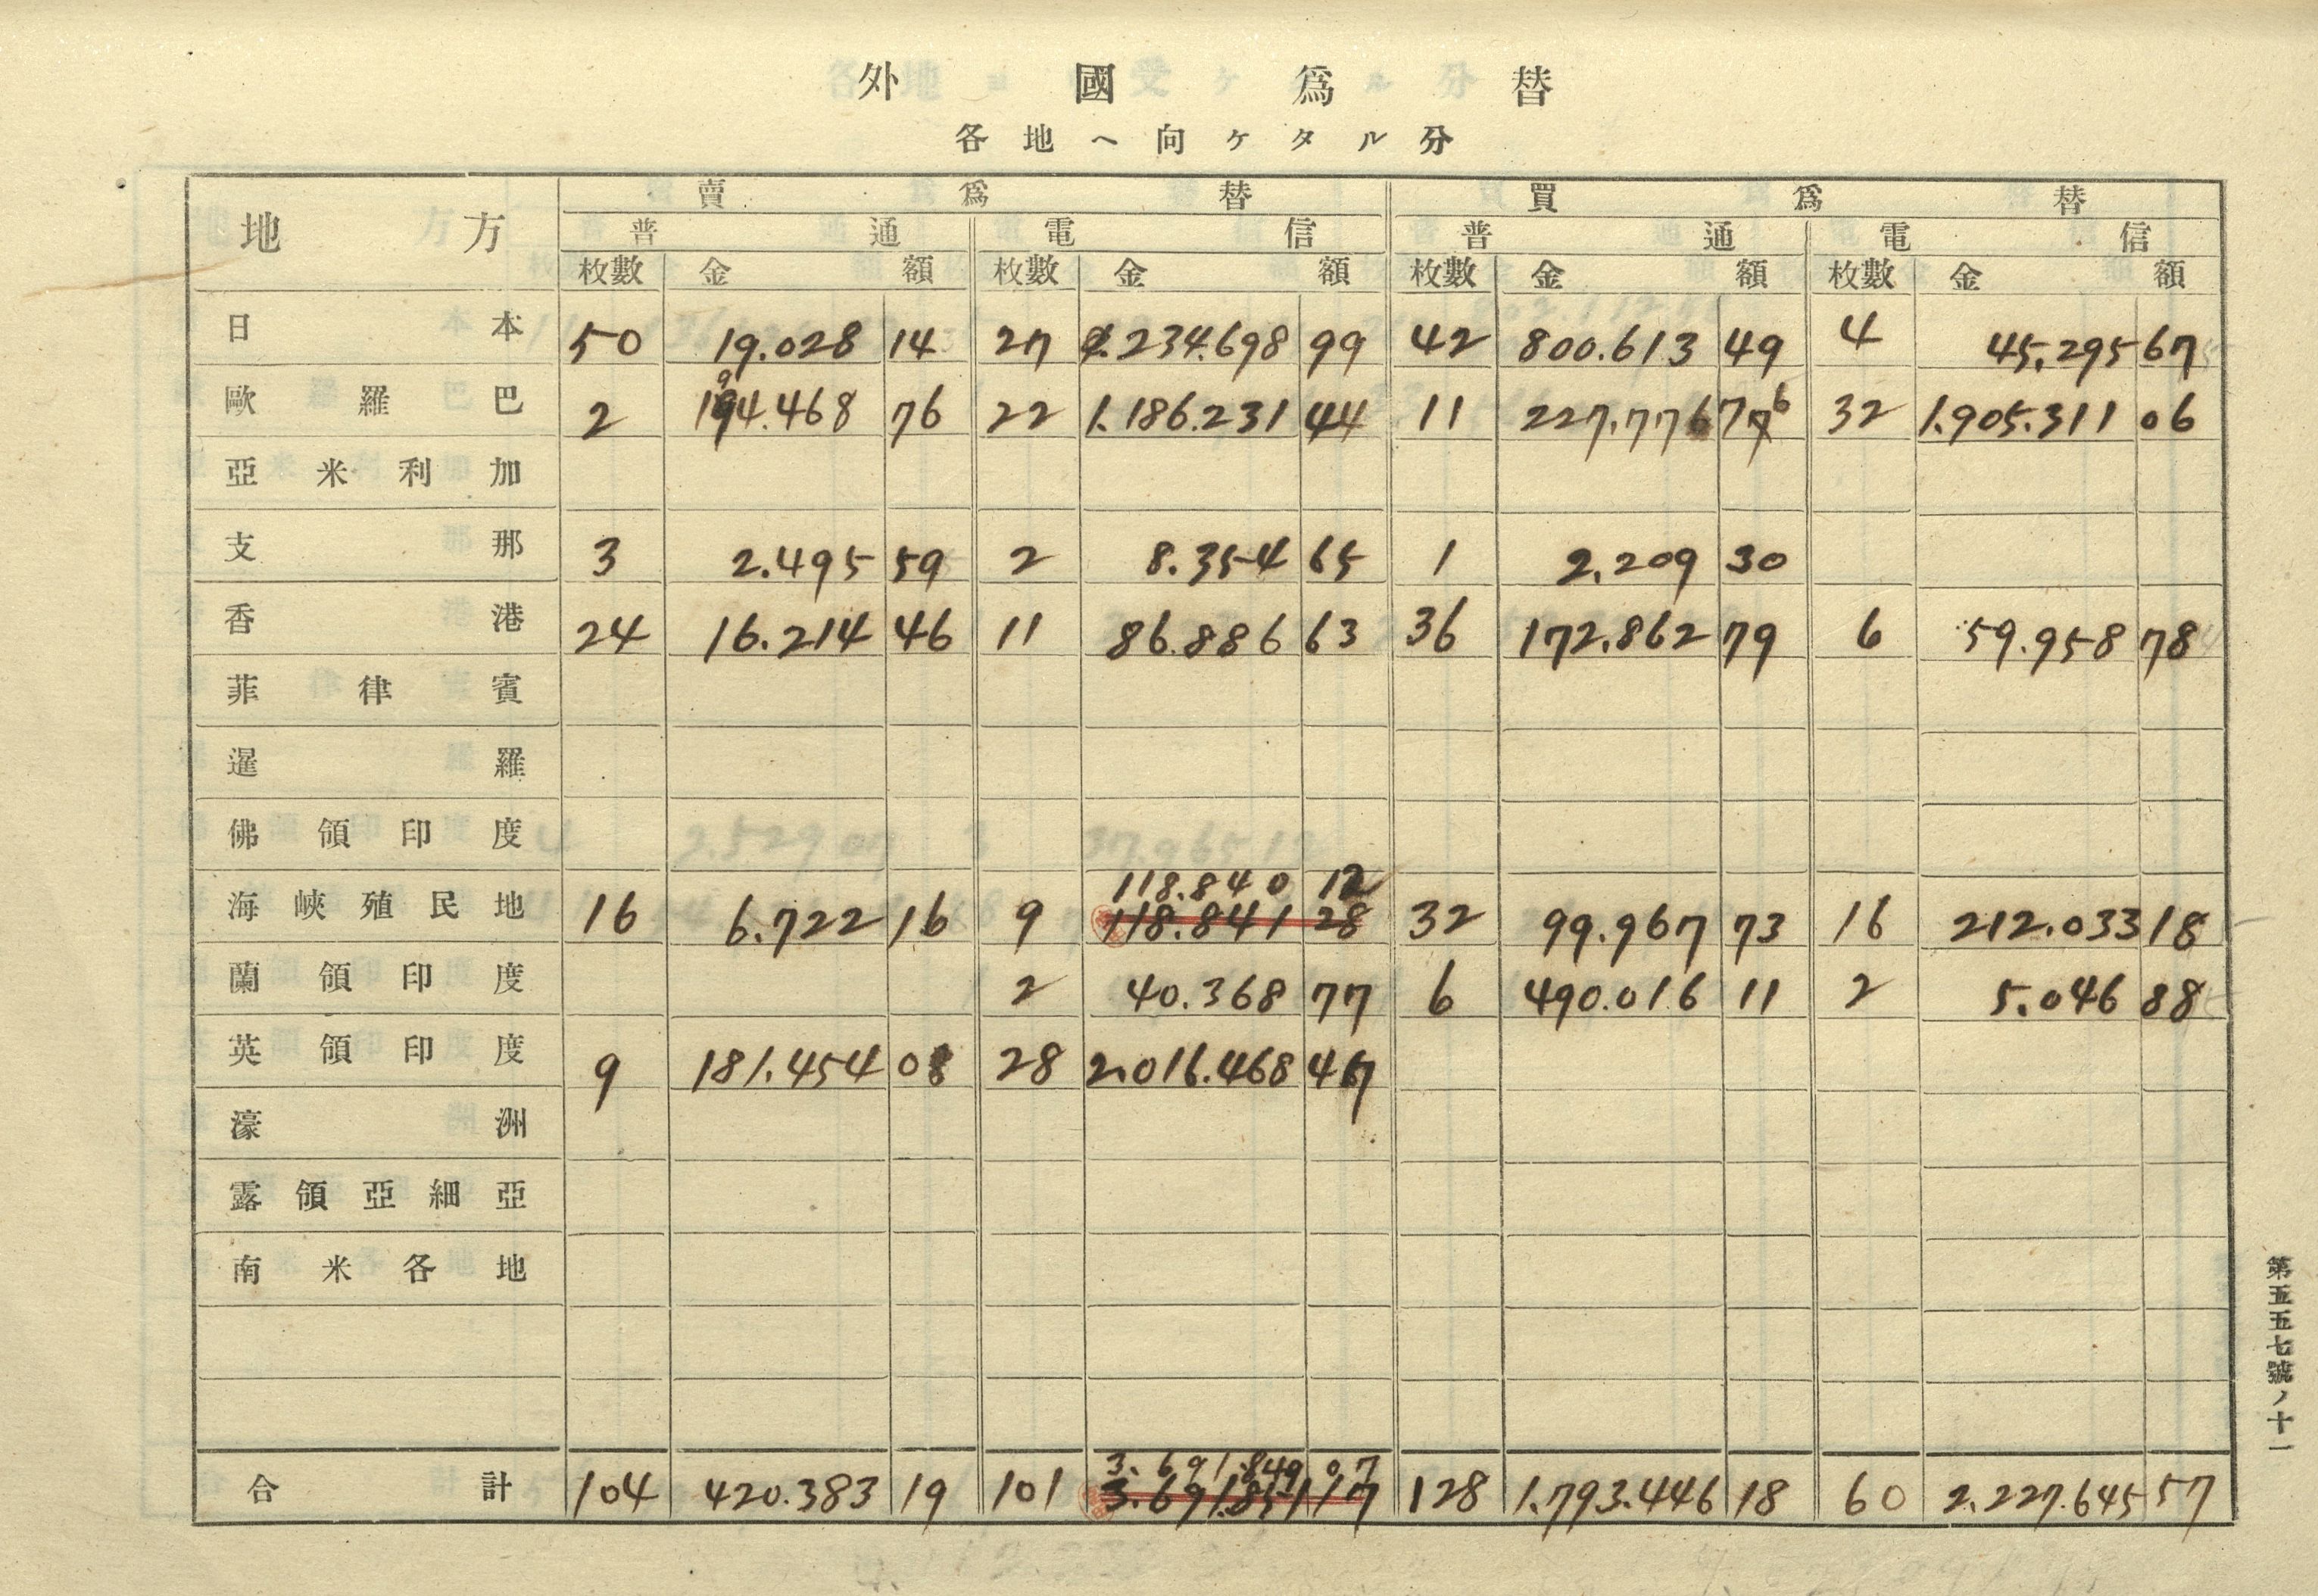 外國爲替
各地ヘ向ケタル分
地方 賣爲替 買爲替
普通 電信 普通 電信
枚數 金額 枚數 金額 枚數 金額 枚數 金額
日本 50 19.028 14 27 234.698 99 42 800.613 49 4 45.295 67
歐羅巴 2 194.468 76 22 1.186.231 44 11 227.776 76 32 1.905.311 06
亞米利加
支那 3 2.495 59 2 8.354 65 1 2.209 30
香港 24 16.214 46 11 86.886 63 36 172.862 79 6 59.958 78
菲律賓
暹羅
佛領印度
118.840 12
海峽殖民地 16 6.722 16 9 118.841 28 32 99.967 73 16 212.033 18
蘭領印度 2 40.368 77 6 490.016 11 2 5.046 88
英領印度 9 181.454 08 28 2.016.468 47
濠洲
露領亞細亞
南米各地
3.691.849 07
合計 104 420.383 19 101 3.691.851 17 128 1.793.446 18 60 2.227.645 57
第五五七號ノ十一